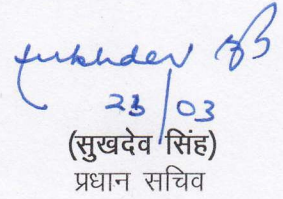 Sukhdev
23/03
(सुखदेव सिंह)
प्रधान सचिव